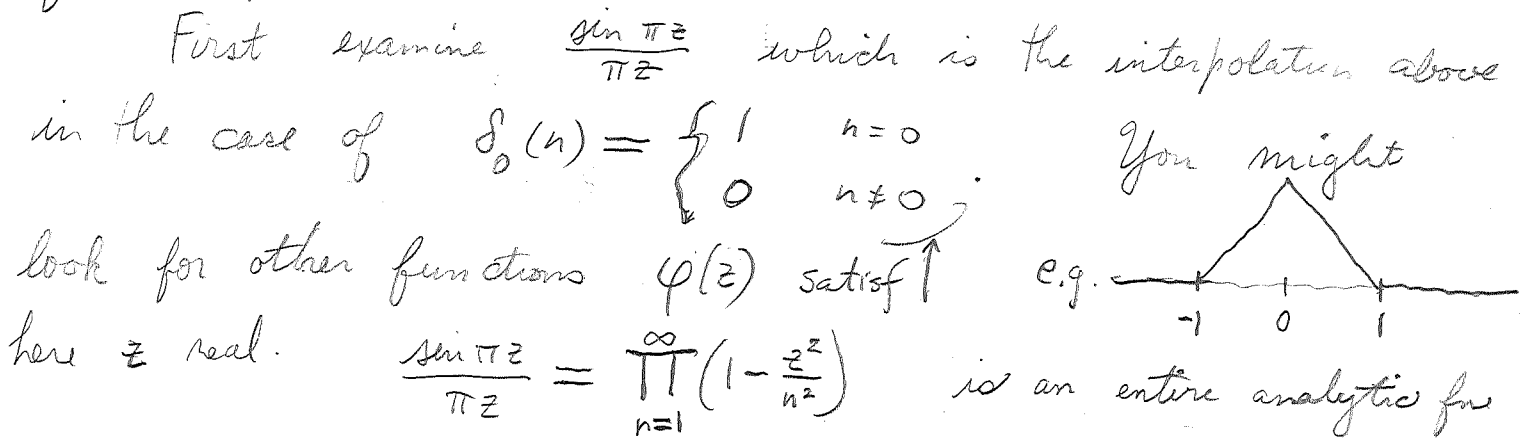 First examine $\frac{\sin \pi z}{\pi z}$ which is the interpolation above
in the case of $\delta_0(n) = \begin{cases} 1 & n = 0 \\ 0 & n \neq 0 \end{cases}$. You might
look for other functions $\varphi(z)$ satisf ↑ e.g. -1 0 1
here z real. $\frac{\sin \pi z}{\pi z} = \prod_{n=1}^{\infty} \left(1 - \frac{z^2}{n^2}\right)$ is an entire analytic fn